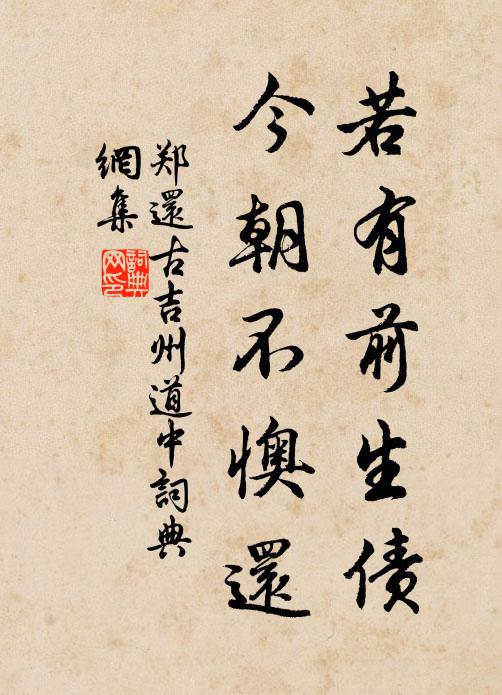 若有前生债
今朝不懊還
郑還古吉州道中詞典
網集
詞典
网印